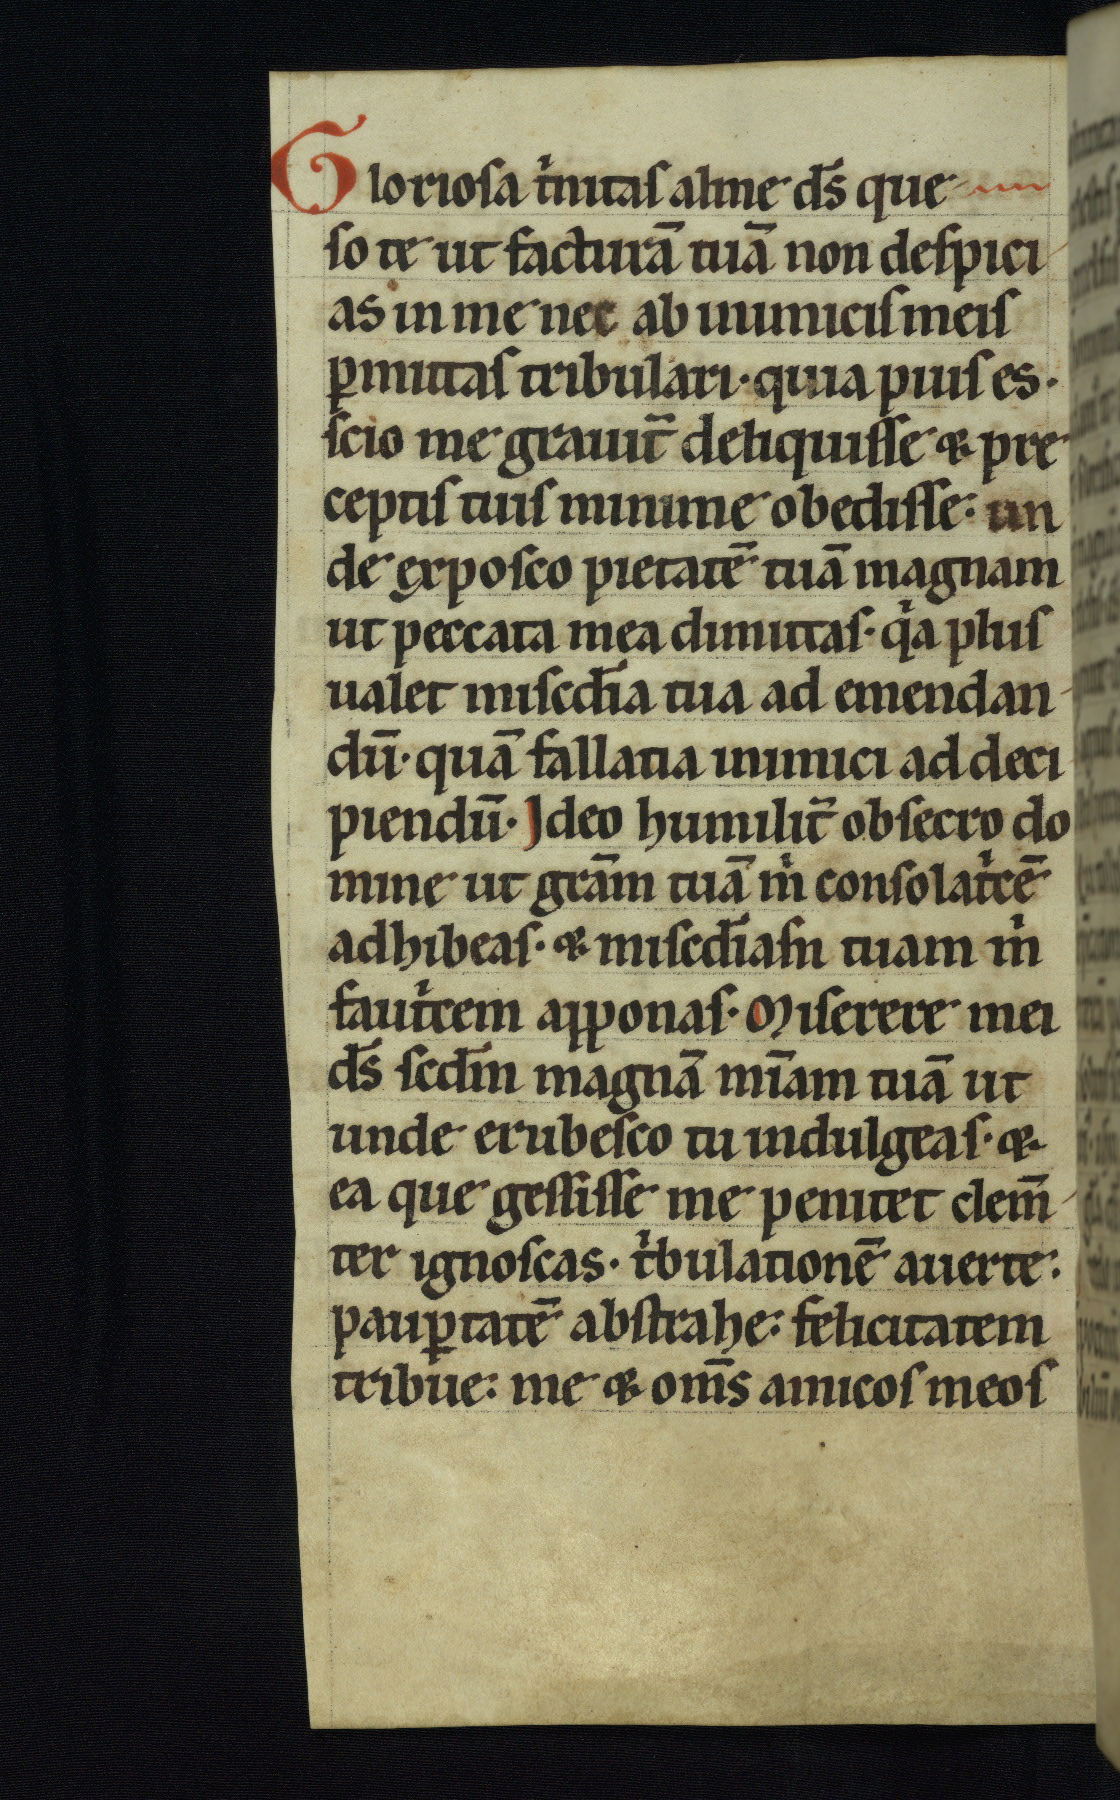 Gloriosa tͥnitas alme ds̄ que
so te ut facturā tuā non despici
as in me nec ab inimicis meis
ꝑmittas tribulari· quia pius es·
scio me grauit̄ deliquisse & pre
ceptis tuis minime obedisse: un
de exposco pietatē tuā magnam
ut peccata mea dimittas· qͥa plus
ualet misc̄dia tua ad emendan
dū· quā fallatia inimici ad deci
piendū· Ideo humilit̄ obsecro do
mine ut grām tuā mͥ consolatͥcē
adhibeas· & misc̄diam tuam mͥ
fautͥcem apponas· Miserere mei
ds̄ scd̄m magnā mīam tuā ut
unde erubesco tu indulgeas· &
ea que gessisse me penitet clem̄
ter ignoscas· tͥbulationē auerte:
pauꝑtatē abstrahe: felicitatem
tribue: me & om̄s amicos meos